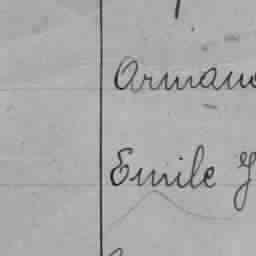 Arman
Emile